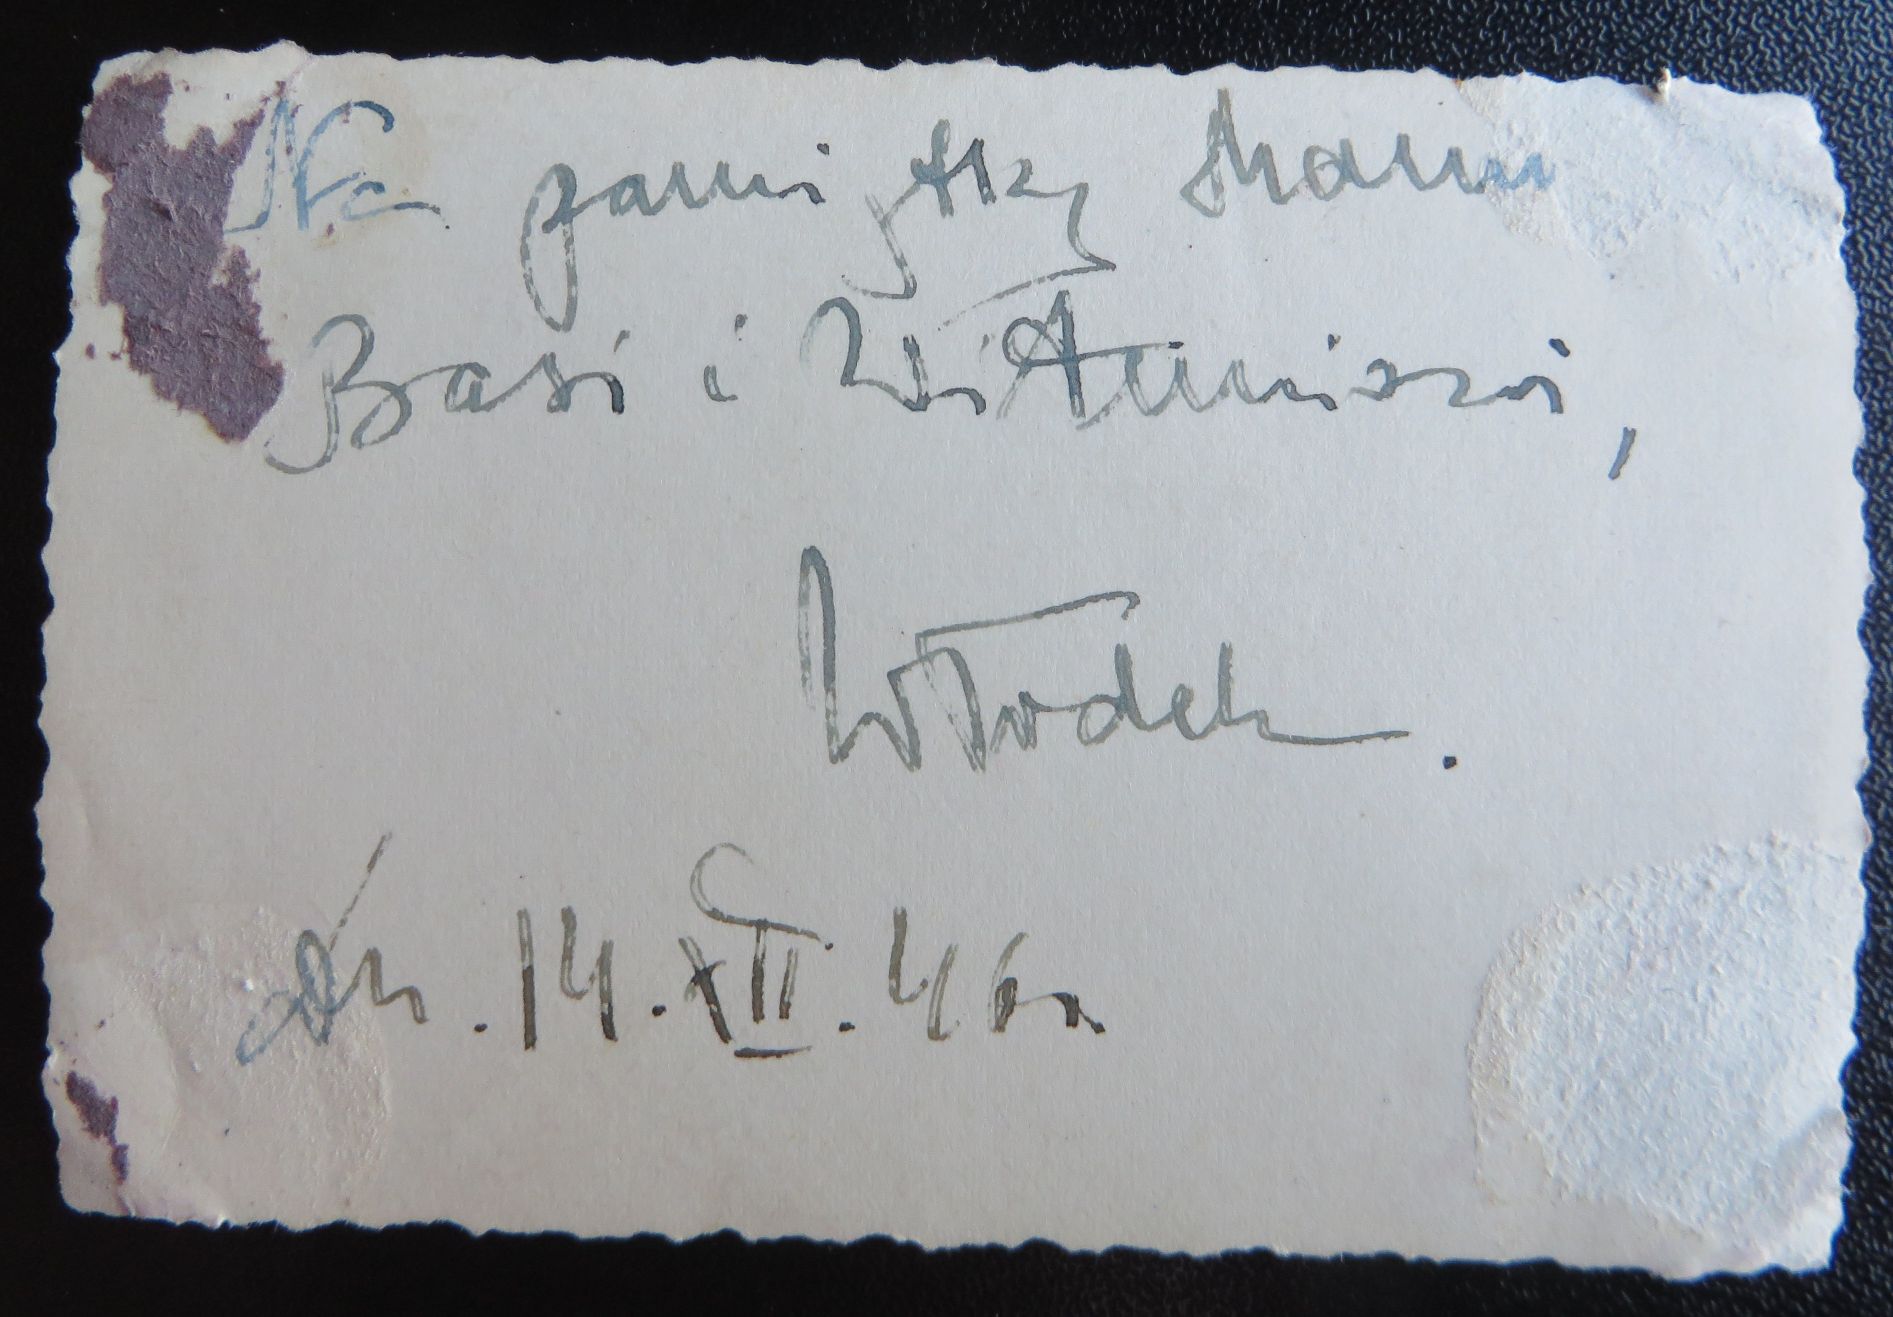 Na pamiątkę Mamu
Basi i Witunisiowi,
Włodek.
dn. 14.XII.46r